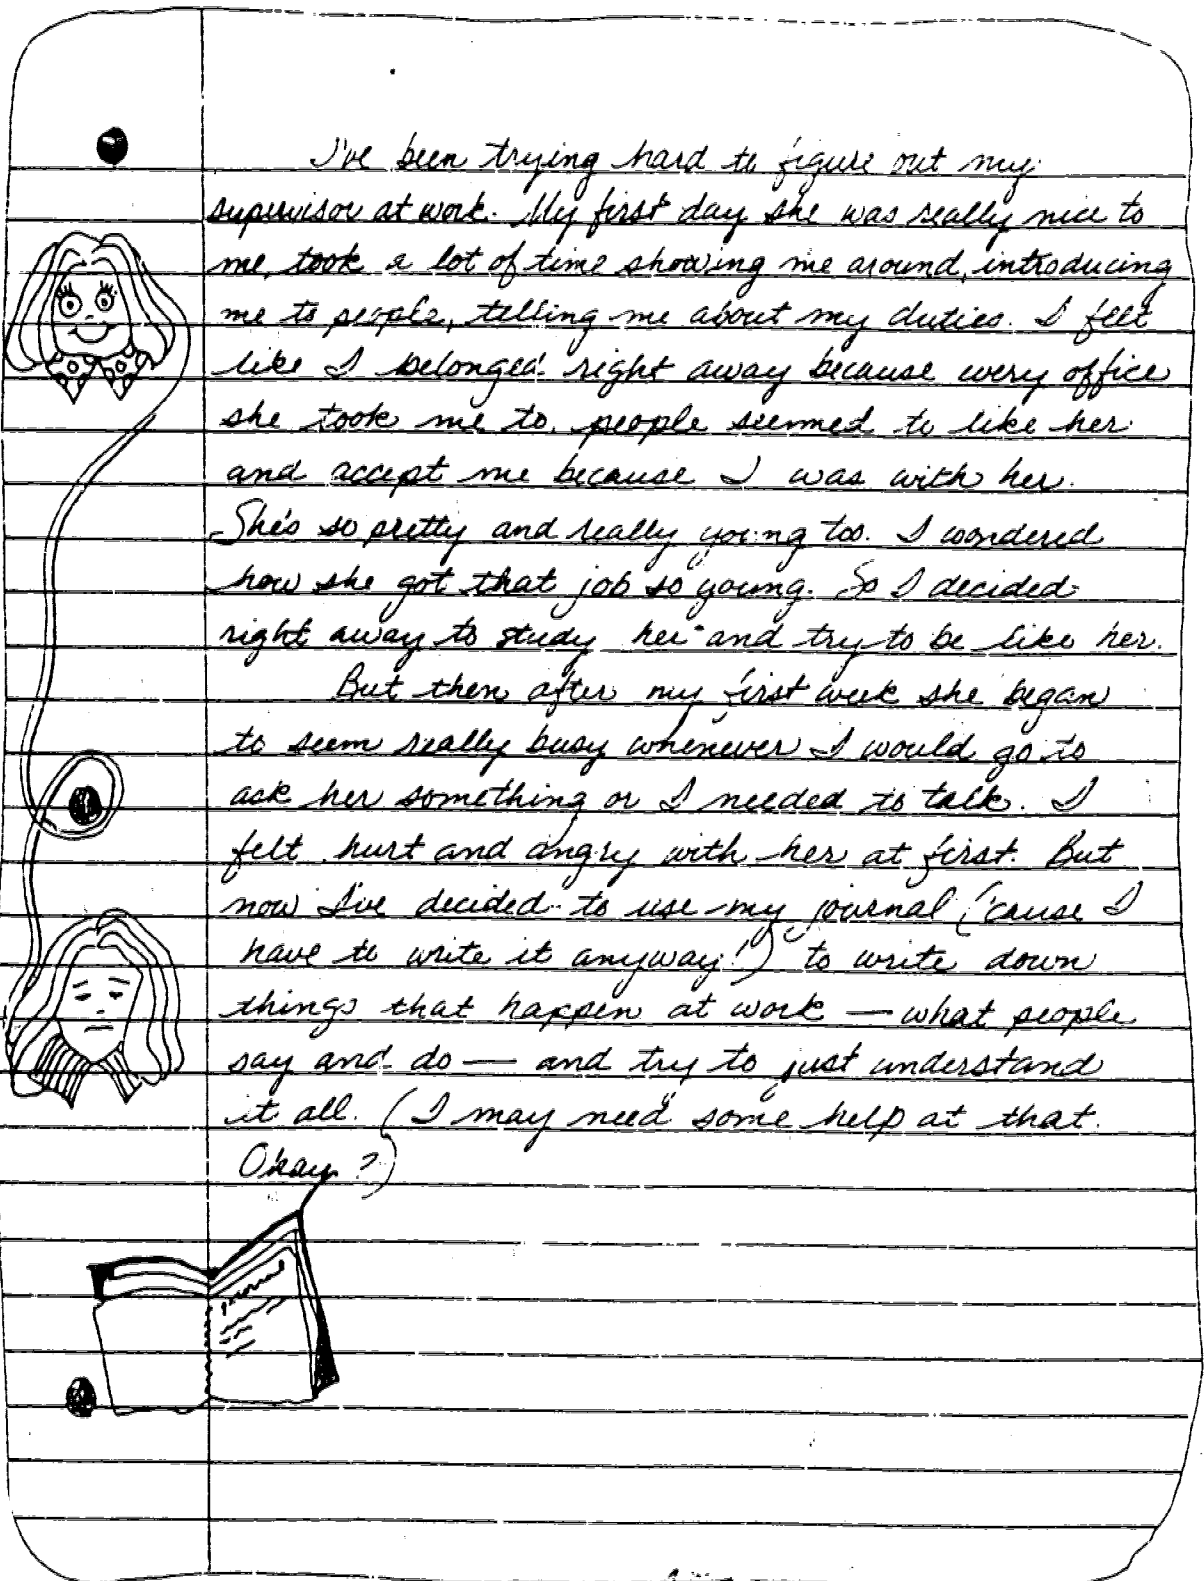 I've been trying hard to figure out my
supervisor at work. My first day she was really nice to
me, took a lot of time showing me around, introducing
me to people, telling me about my duties. I felt
like I belonged right away because every office
she took me to, people seemed to like her
and accept me because I was with her.
She's so pretty and really young too. I wondered
how she got that job so young. So I decided
right away to study her and try to be like her.
But then after my first week she began
to seem really busy whenever I would go to
ask her something or I needed to talk. I
felt hurt and angry with her at first. But
now I've decided to use my journal ('cause I
have to write it anyway!) to write down
things that happen at work — what people
say and do — and try to just understand
it all. (I may need some help at that.
Okay?)